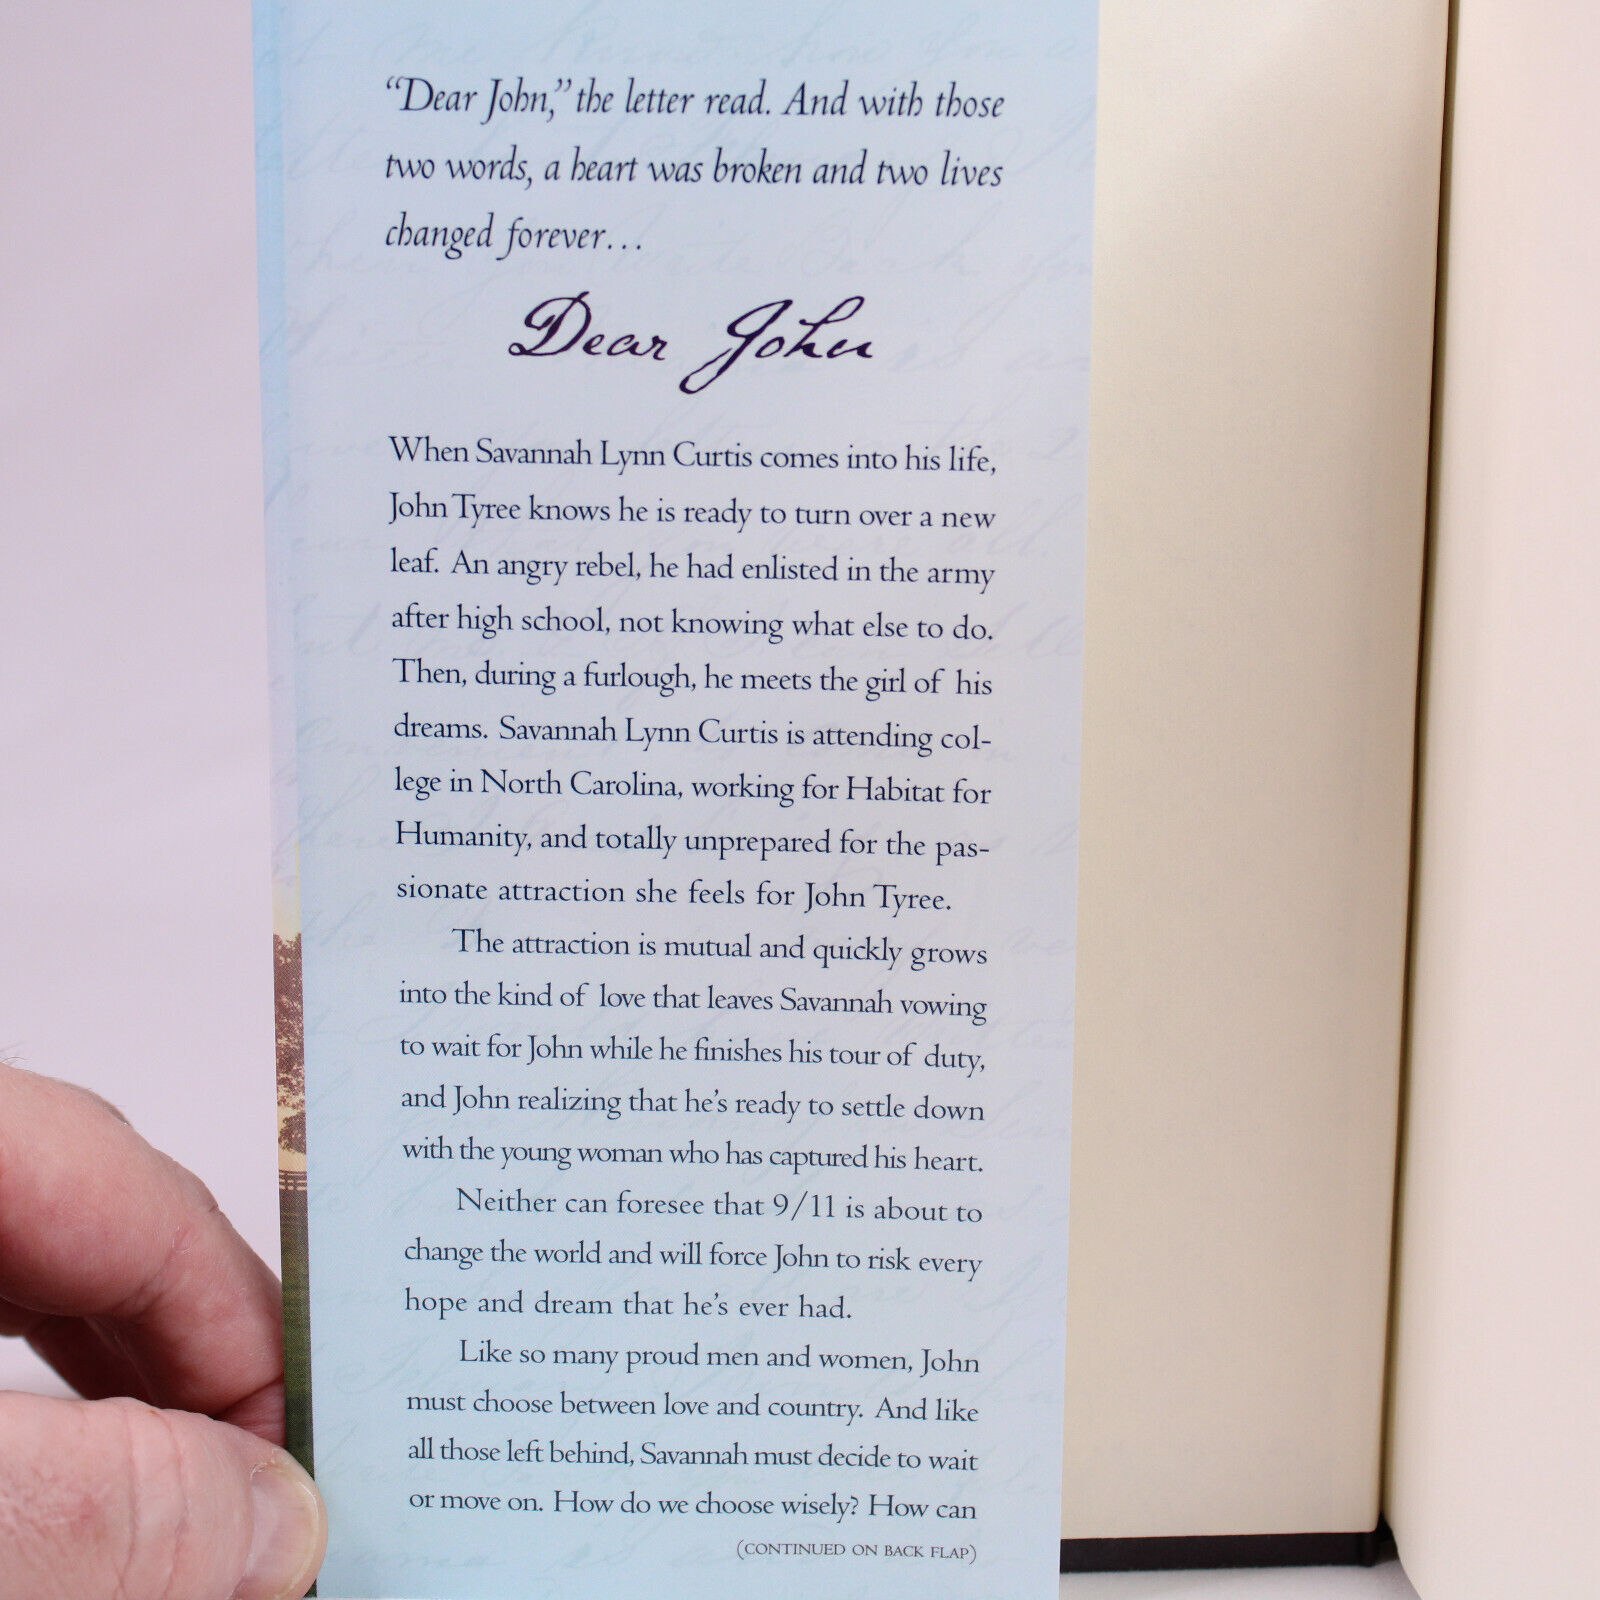 “Dear John,” the letter read. And with those
two words, a heart was broken and two lives
changed forever…
Dear John
When Savannah Lynn Curtis comes into his life,
John Tyree knows he is ready to turn over a new
leaf. An angry rebel, he had enlisted in the army
after high school, not knowing what else to do.
Then, during a furlough, he meets the girl of his
dreams. Savannah Lynn Curtis is attending col-
lege in North Carolina, working for Habitat for
Humanity, and totally unprepared for the pas-
sionate attraction she feels for John Tyree.
The attraction is mutual and quickly grows
into the kind of love that leaves Savannah vowing
to wait for John while he finishes his tour of duty,
and John realizing that he’s ready to settle down
with the young woman who has captured his heart.
Neither can foresee that 9/11 is about to
change the world and will force John to risk every
hope and dream that he’s ever had.
Like so many proud men and women, John
must choose between love and country. And like
all those left behind, Savannah must decide to wait
or move on. How do we choose wisely? How can
(CONTINUED ON BACK FLAP)